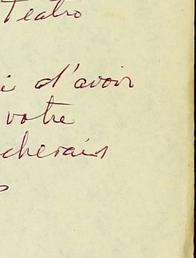 Teatro
i d'avoir
votre
cherais